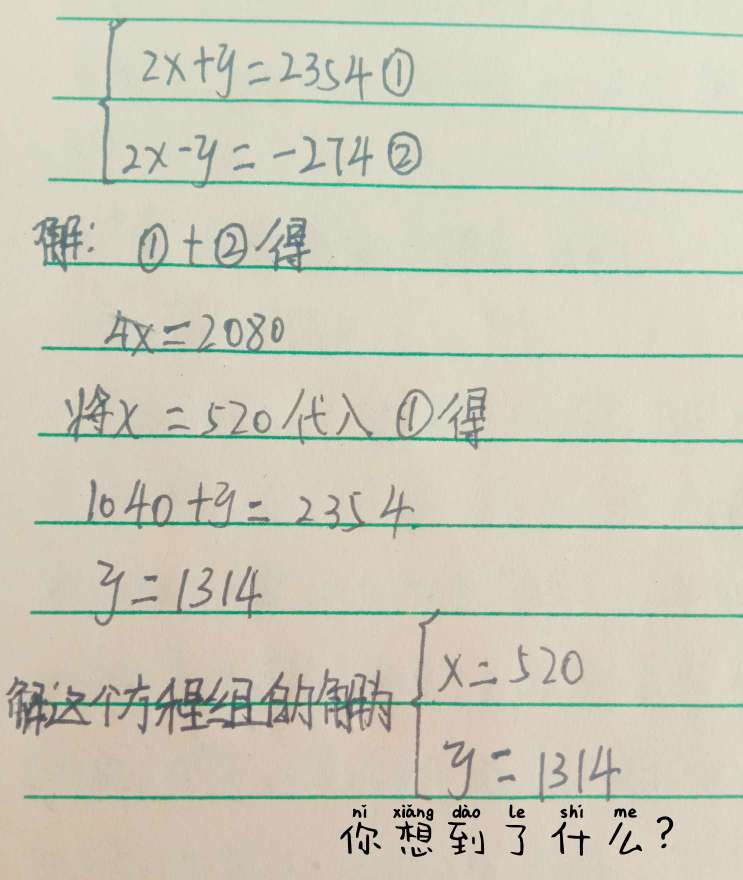 2x+y=2354①
2x-y=-274②
解: ①+②得
4x=2080
将x=520代入①得
1040+y=2354
y=1314
解这个方程组的解为
x=520
y=1314
nǐ xiǎng dào le shí me
你想到了什么?